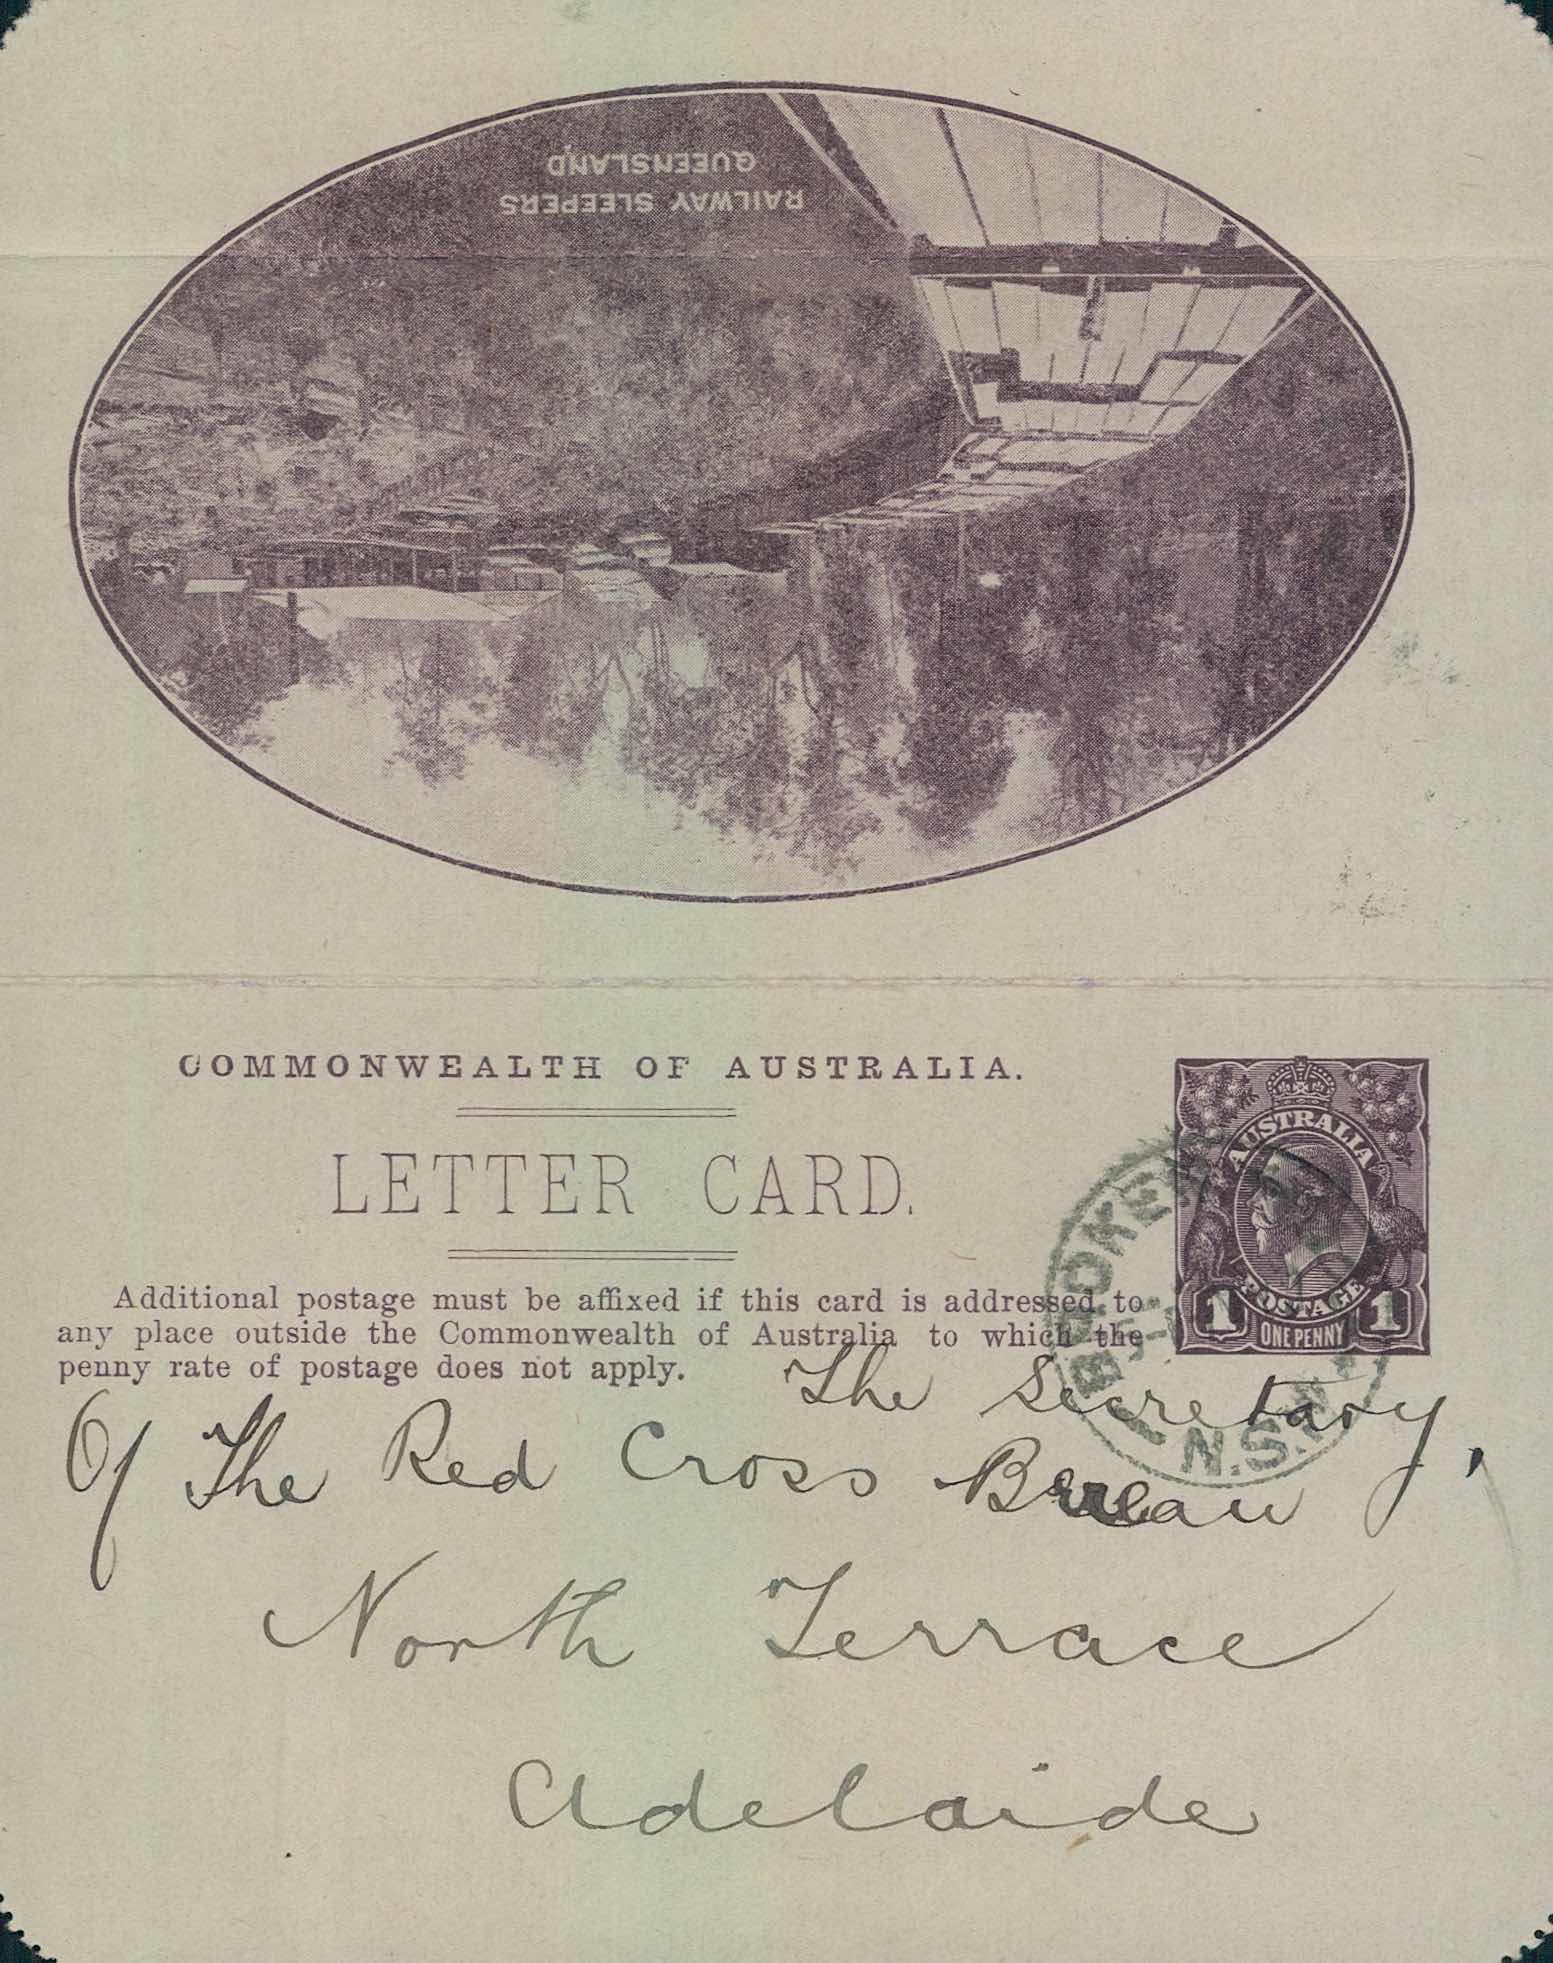 RAILWAY SLEEPERS
QUEENSLAND
COMMONWEALTH OF AUSTRALIA.
LETTER CARD.
AUSTRALIA
POSTAGE
1 ONE PENNY 1
Additional postage must be affixed if this card is addressed to
any place outside the Commonwealth of Australia to which the
penny rate of postage does not apply.
BROKEN
N.S.W
The Secretary,
Of The Red Cross Bureau
North Terrace
Adelaide